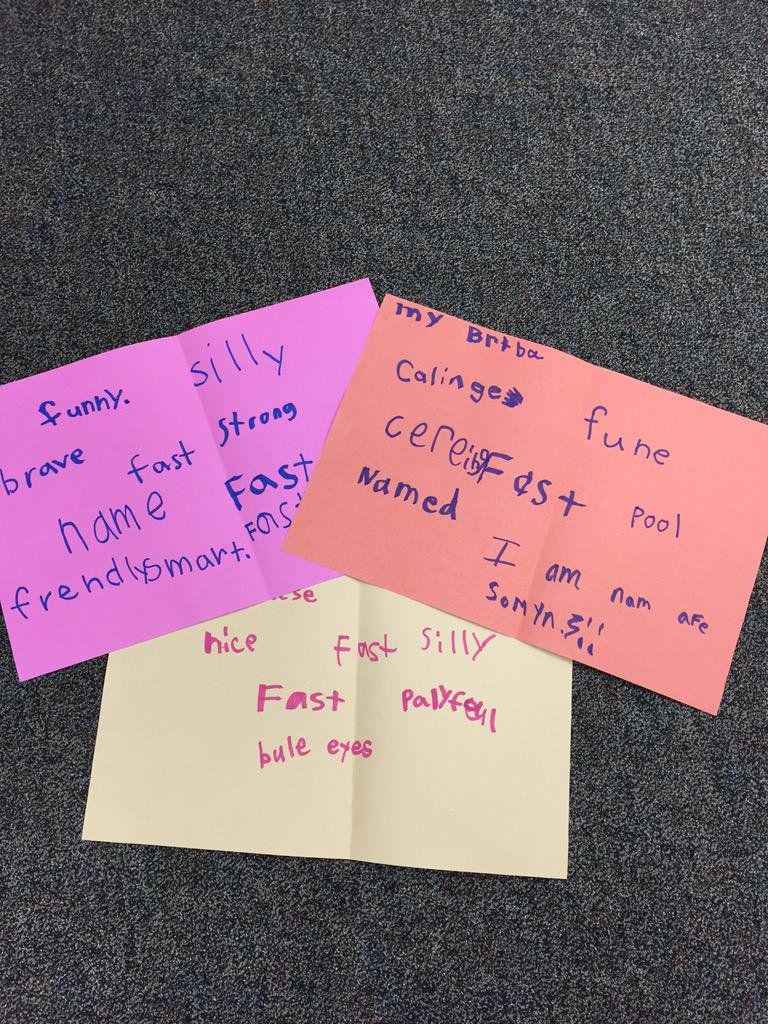 funny.
silly
brave
fast
strong
name
Fast
FAST
frendly
smart.
my Brtba
Calinge
fune
cereing
FaST
Pool
Named
I am nam are
somyn.3!!
nice
Fast
silly
Fast
palyfeul
bule eyes